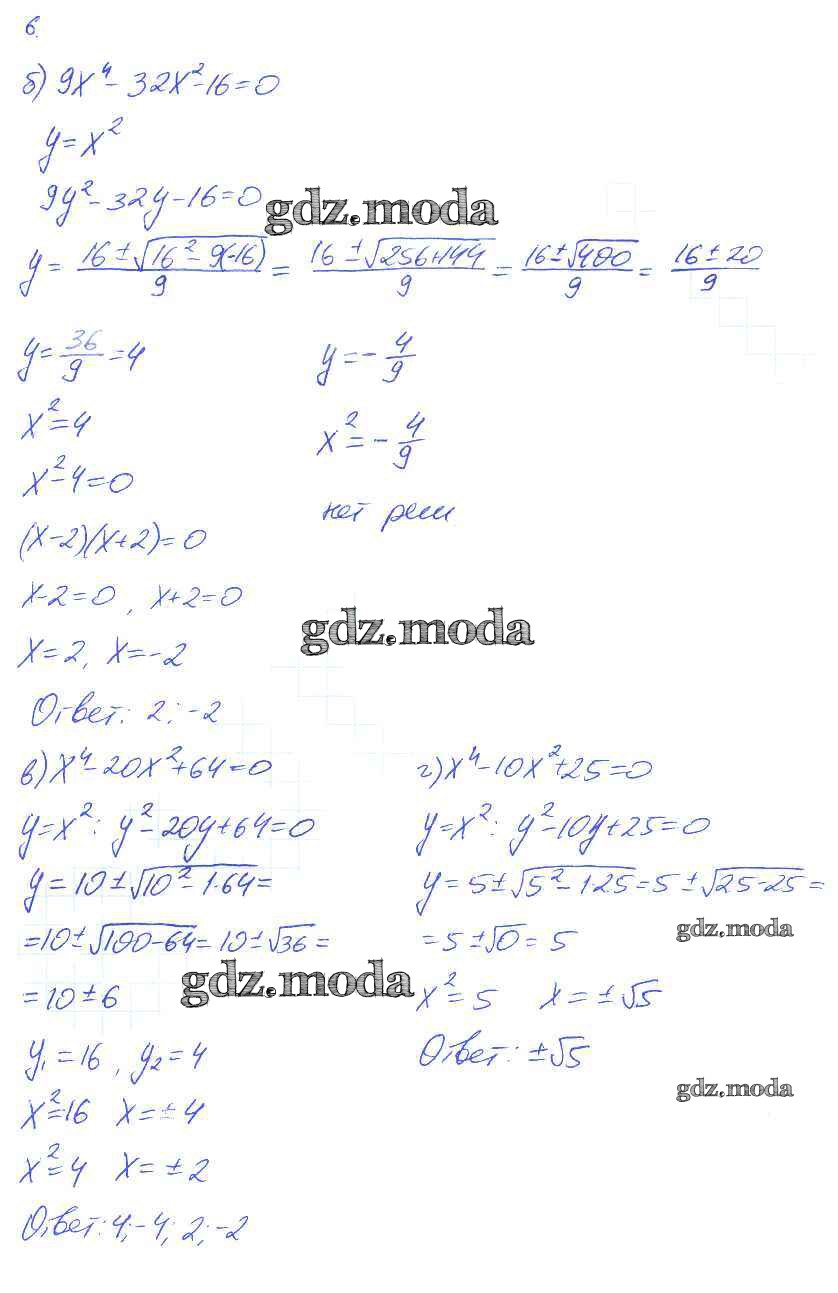 6.
б) 9x⁴ - 32x² - 16 = 0
y = x²
9y² - 32y - 16 = 0
gdz.moda
y = (16 ± √(16² - 9(-16)))/9 = (16 ± √(256+144))/9 = (16 ± √400)/9 = (16 ± 20)/9
y = 36/9 = 4
x² = 4
x² - 4 = 0
(x-2)(x+2) = 0
x-2 = 0, x+2 = 0
x = 2, x = -2
Ответ: 2; -2
y = - 4/9
x² = - 4/9
нет реш
gdz.moda
в) x⁴ - 20x² + 64 = 0
y = x²: y² - 20y + 64 = 0
y = 10 ± √(10² - 1·64) =
= 10 ± √(100-64) = 10 ± √36 =
= 10 ± 6
gdz.moda
y₁ = 16, y₂ = 4
x² = 16 x = ± 4
x² = 4 x = ± 2
Ответ: 4; -4; 2; -2
г) x⁴ - 10x² + 25 = 0
y = x²: y² - 10y + 25 = 0
y = 5 ± √(5² - 1·25) = 5 ± √(25-25) =
= 5 ± √0 = 5
gdz.moda
x² = 5 x = ± √5
Ответ: ± √5
gdz.moda